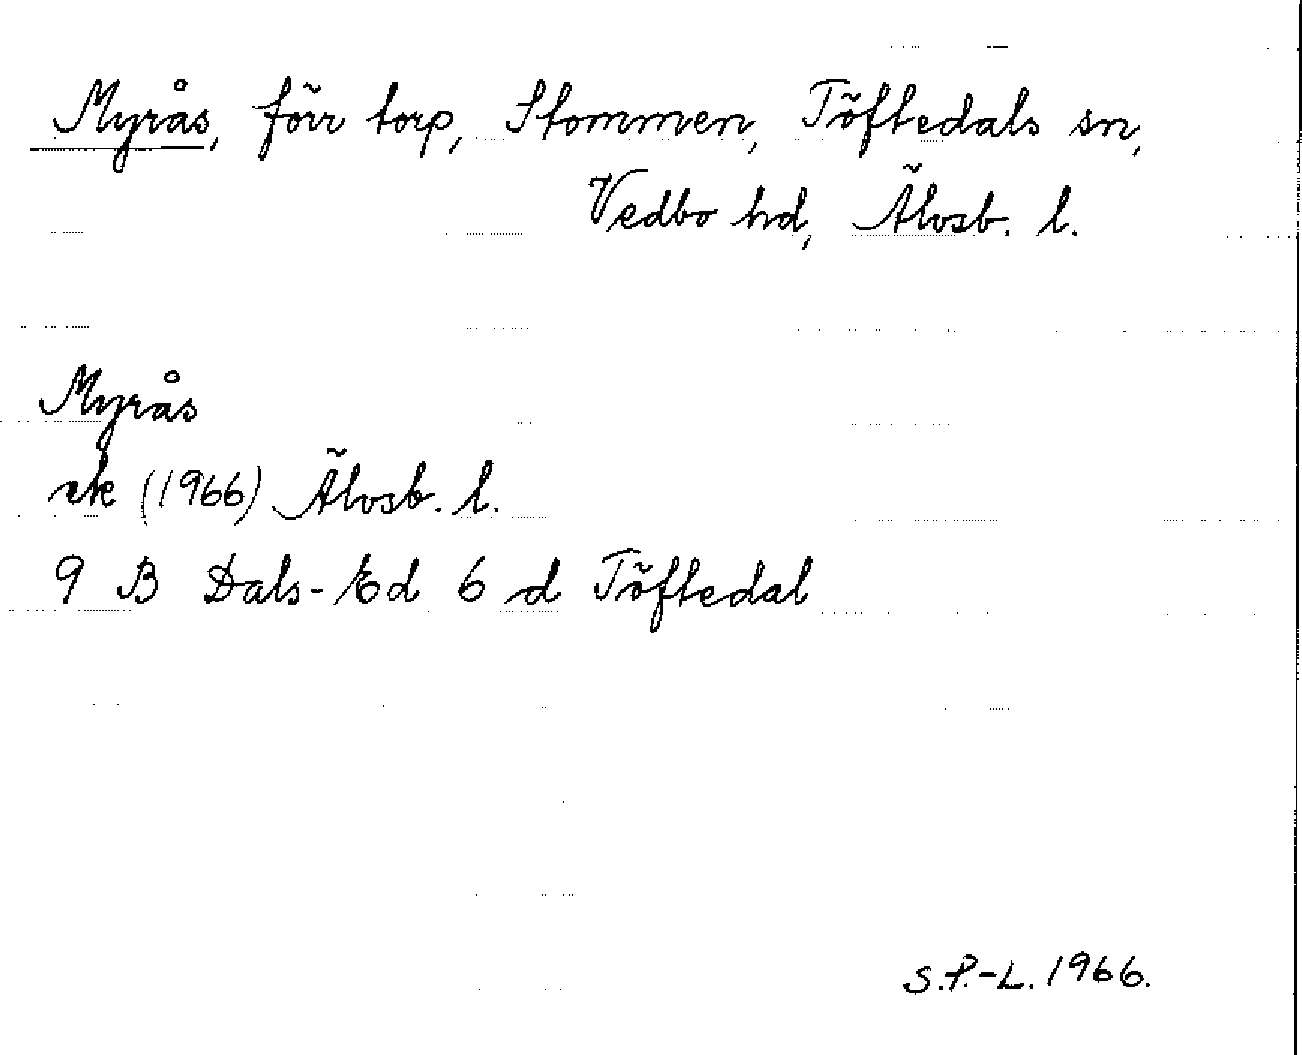 Myrås, förr torp, Stommen, Töftedals sn,
Vedbo hd, Älvsb. l.
Myrås
ek (1966) Älvsb. l.
9 B Dals-Ed 6 d Töftedal
S.P.-L. 1966.